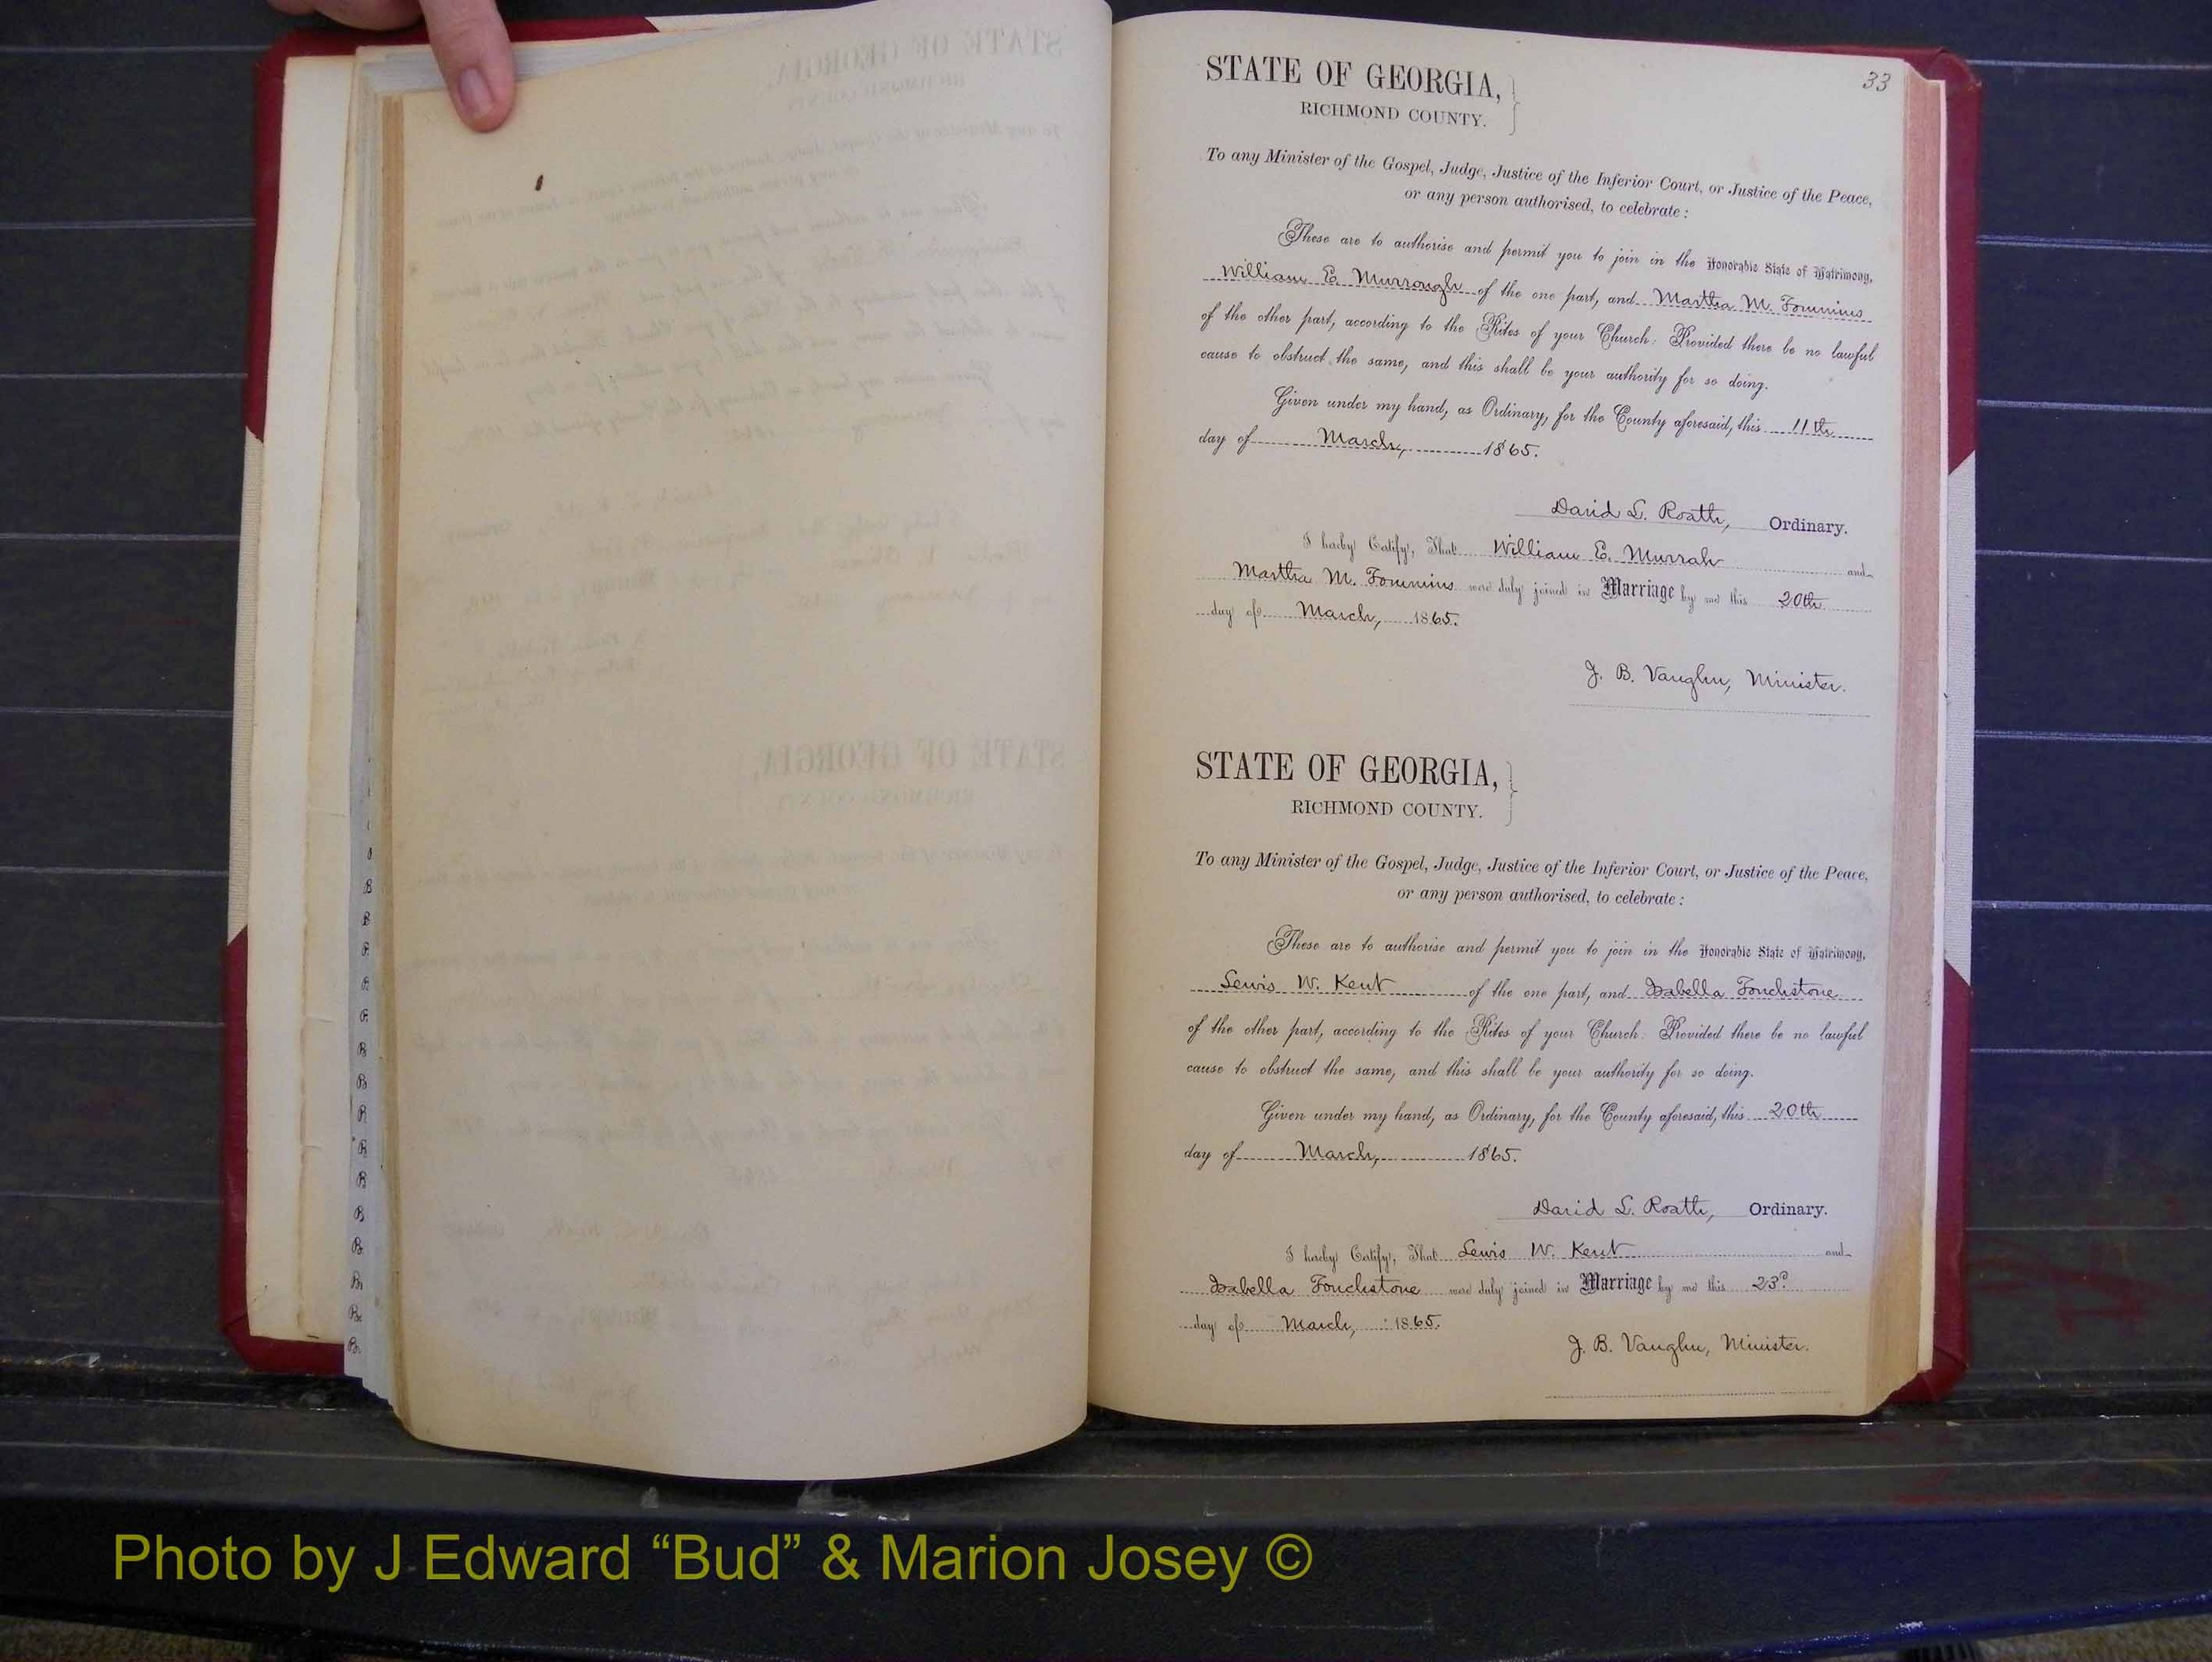 33
STATE OF GEORGIA,
RICHMOND COUNTY.
To any Minister of the Gospel, Judge, Justice of the Inferior Court, or Justice of the Peace,
or any person authorised, to celebrate :
These are to authorise and permit you to join in the Honorable State of Matrimony,
William E. Murrough of the one part, and Martha M. Fommins
of the other part, according to the Rites of your Church: Provided there be no lawful
cause to obstruct the same, and this shall be your authority for so doing.
Given under my hand, as Ordinary, for the County aforesaid, this 11th
day of March, 1865.
David L. Roath, Ordinary.
I hereby Certify, That William E. Murrah and
Martha M. Fommins were duly joined in Marriage by me this 20th
day of March, 1865.
J. B. Vaughn, Minister.
STATE OF GEORGIA,
RICHMOND COUNTY.
To any Minister of the Gospel, Judge, Justice of the Inferior Court, or Justice of the Peace,
or any person authorised, to celebrate :
These are to authorise and permit you to join in the Honorable State of Matrimony,
Lewis W. Kent of the one part, and Isabella Fouchstone
of the other part, according to the Rites of your Church: Provided there be no lawful
cause to obstruct the same, and this shall be your authority for so doing.
Given under my hand, as Ordinary, for the County aforesaid, this 20th
day of March, 1865.
David L. Roath, Ordinary.
I hereby Certify, That Lewis W. Kent and
Isabella Fouchstone were duly joined in Marriage by me this 23d
day of March, 1865.
J. B. Vaughn, Minister.
Photo by J Edward “Bud” & Marion Josey ©